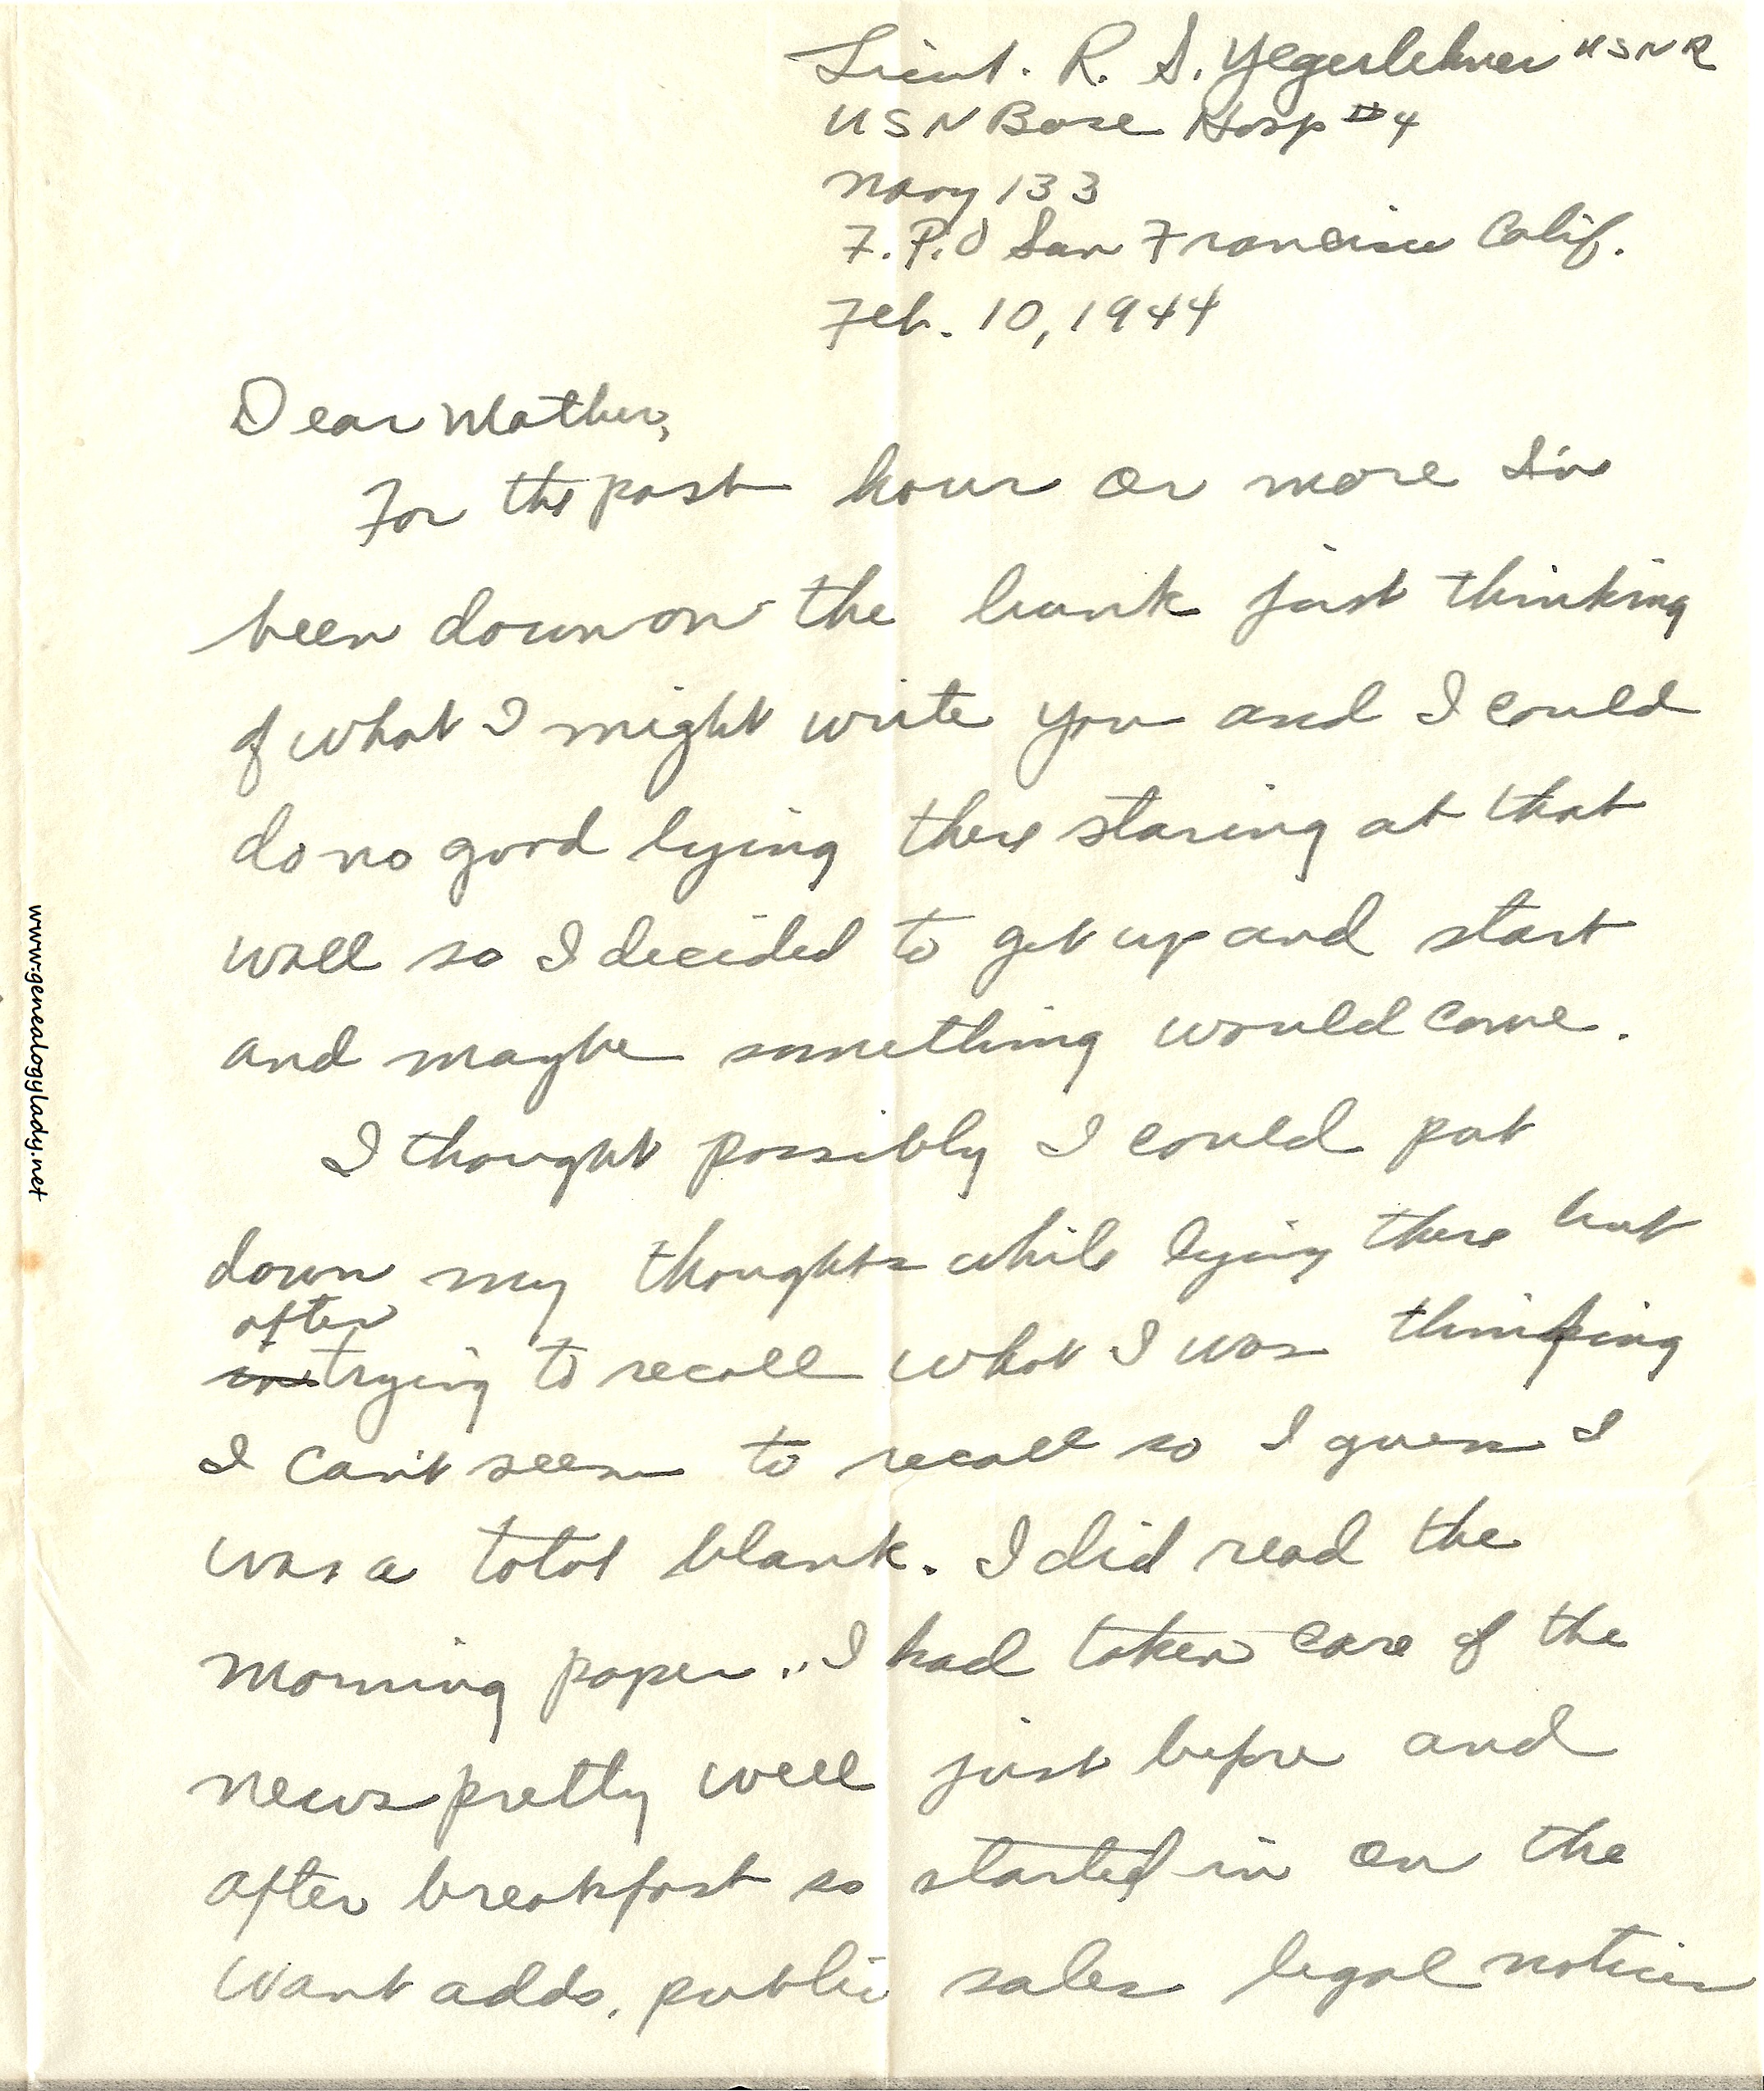 Lieut. R. S. Yegerlehner USNR
USN Base Hosp #4
Navy 133
F.P.O San Francisco Calif.
Feb. 10, 1944
Dear Mother,
For the past hour or more I've
been down on the bunk just thinking
of what I might write you and I could
do no good lying there staring at that
wall so I decided to get up and start
and maybe something would come.
I thought possibly I could put
down my thoughts while lying there but
after
trying to recall what I was thinking
I can't seem to recall so I guess I
was a total blank. I did read the
morning paper.. I had taken care of the
news pretty well just before and
after breakfast so started in on the
want adds, public sales legal notices
www.genealogylady.net